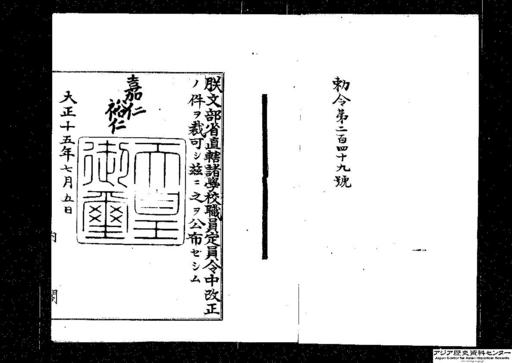 勅令第二百四十九號
朕文部省直轄諸學校職員定員令中改正
ノ件ヲ裁可シ茲ニ之ヲ公布セシム
嘉仁
裕仁
天皇
御璽
大正十五年七月五日
内閣
アジア歴史資料センター
Japan Center for Asian Historical Records